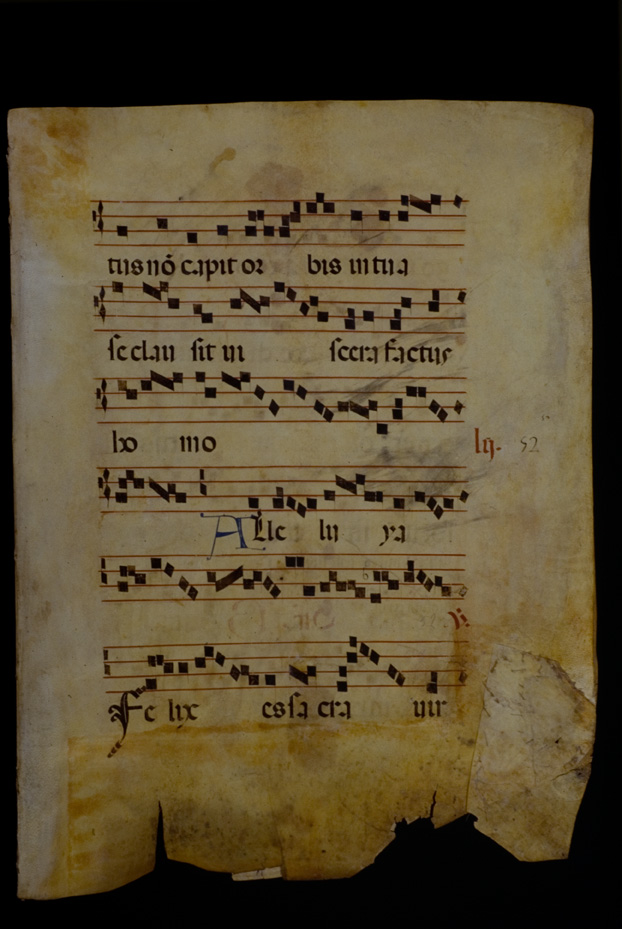 tus nō capit or bis in tu a
se clau sit in scera factus
ho mo
lij. 52
Alle lu ya
℣.
Fe lix es sa cra uir